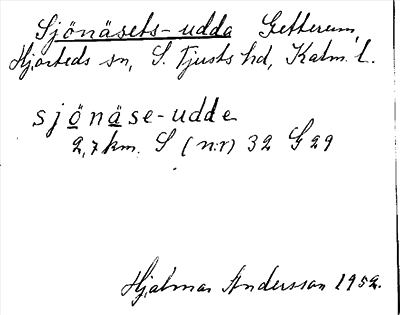 Sjönäsets-udda Getterum,
Hjorteds sn, S. Tjusts hd, Kalm. l.
sjönäse-udde
2,7 km. S (n:r) 32 G 29
Hjalmar Andersson 1952.